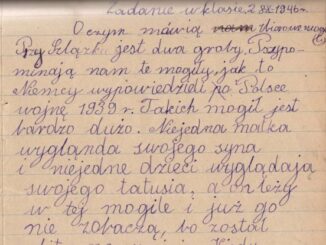 Zadanie w klasie 2 XI 1946 r.
O czym mówią nam
Przy Szlązku jest dwa groby. Przypo-
minają nam te mogiły, jak to
Niemcy wypowiedzili po Polsce
wojnę 1939 r. Takich mogił jest
bardzo dużo. Niejedna matka
wyglanda swojego syna
i niejedne dzieci wyglądają
swojego tatusia, a on leży
w tej mogile i już go
nie zobaczą, bo został